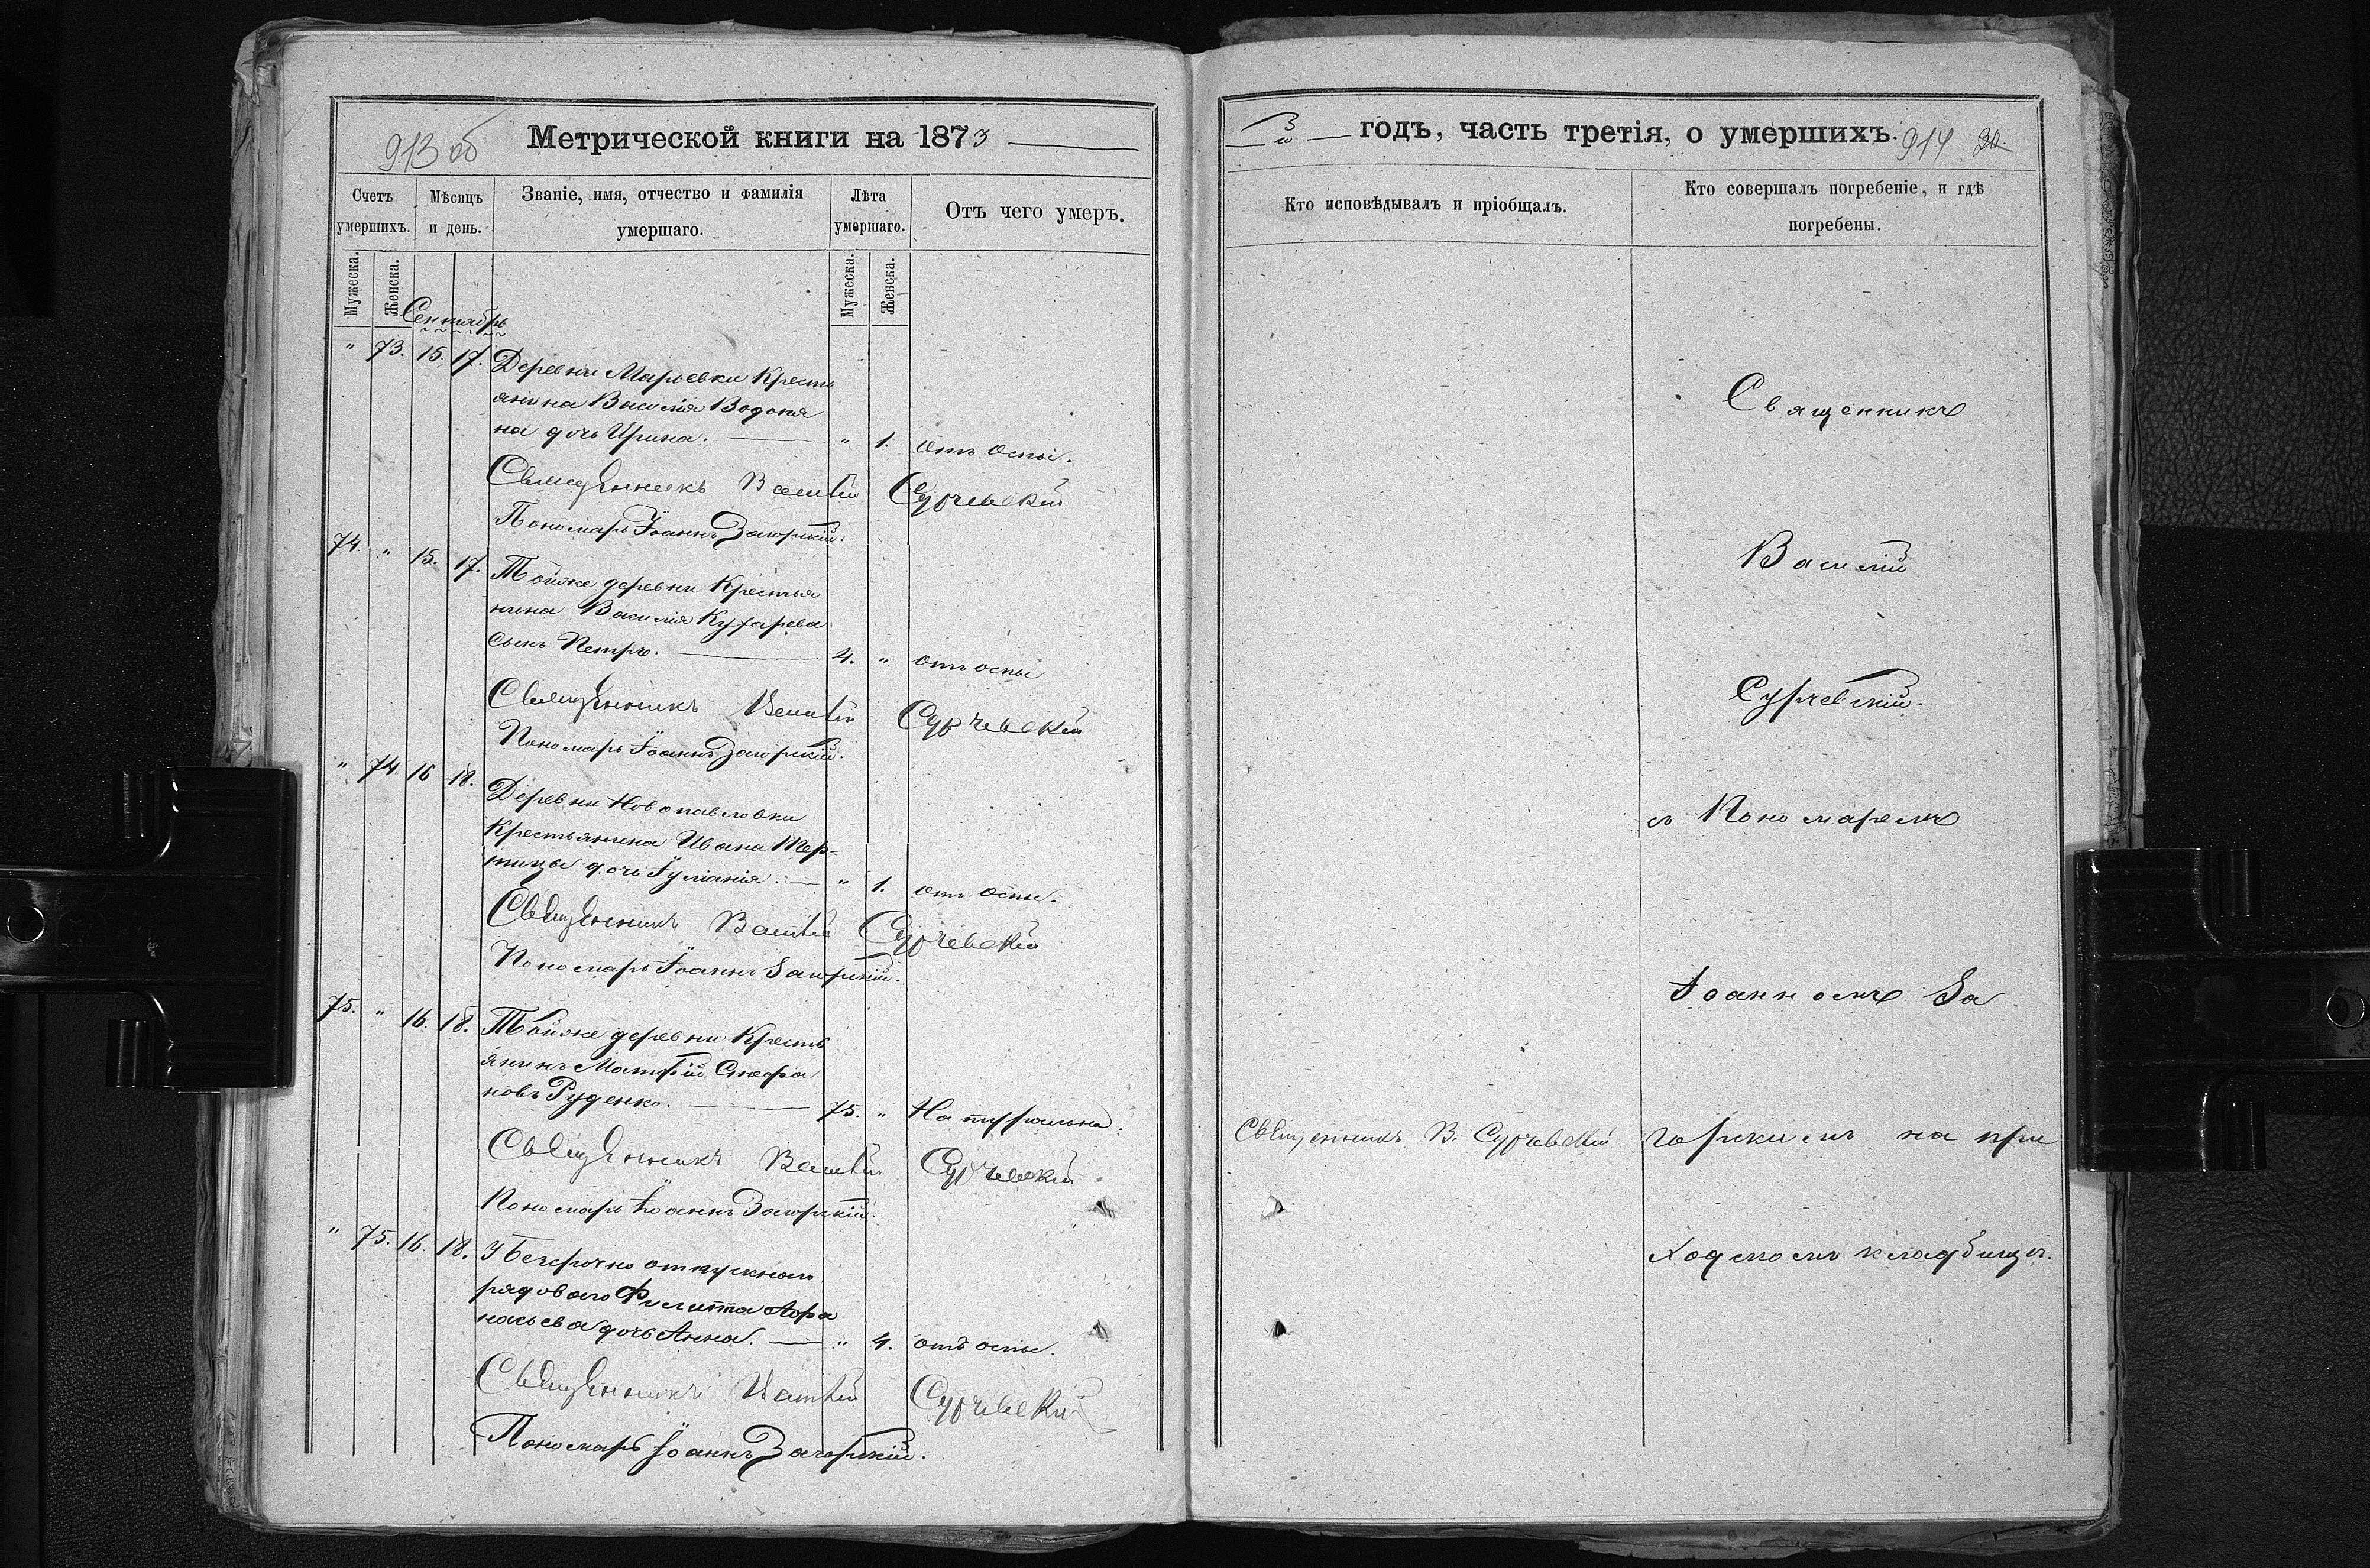 913 об Метрической книги на 1873
Счетъ умершихъ.
Мѣсяцъ и день.
Званіе, имя, отчество и фамилія
умершаго.
Лѣта умершаго.
Отъ чего умеръ.
Мужеска. Женска.
Мужеска. Женска.
Сентябрь
" 73. 15. 17. Деревни Марьевки Кресть
янина Василія Водопя
на дочь Ирина. " 1. отъ оспы.
Священникъ Василій Сурчевскій
Пономарь Іоаннъ Загорскій.
74. " 15. 17. Тойже деревни Крестья
нина Василія Кухарева
сынъ Петръ. 4. " отъ оспы
Священникъ Василій Сурчевскій
Пономарь Іоаннъ Загорскій.
" 74. 16 18. Деревни Новопавловки
Крестьянина Ивана Тер-
тицы дочь Іуліанія. " 1. отъ оспы.
Священникъ Василій Сурчевскій
Пономарь Іоаннъ Загорскій.
75. " 16. 18. Тойже деревни Кресть
янинъ Матфій Стефа
новъ Руденко. 75. " Натурально.
Священникъ Василій Сурчевскій
Пономарь Іоаннъ Загорскій.
" 75. 16. 18. У безсрочно отпускнаго
рядоваго Филиппа Афа
насьева дочь Анна. " 4. отъ оспы.
Священникъ Василій Сурчевскій
Пономарь Іоаннъ Загорскій.
3й годъ, часть третія, о умершихъ. 914 30.
Кто исповѣдывалъ и пріобщалъ.
Кто совершалъ погребеніе, и гдѣ
погребены.
Священникъ
Василій
Сурчевскій.
съ Пономаремъ
Іоанномъ За
Священникъ В. Сурчевскій горскимъ на при
ходскомъ кладбищѣ.